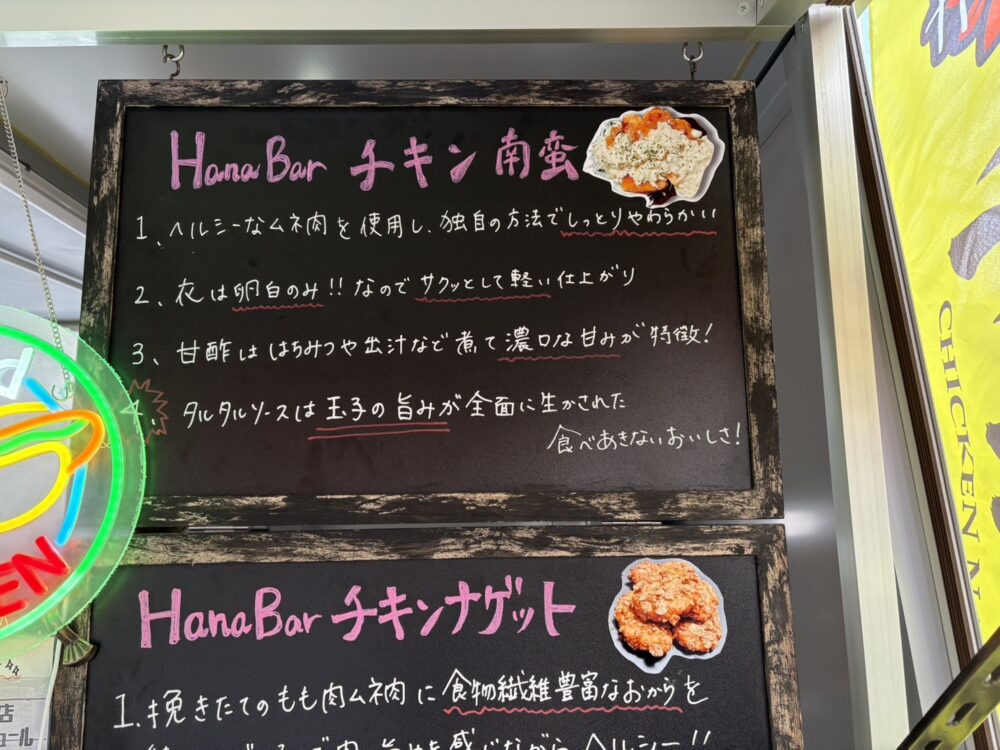 HanaBar チキン南蛮
1、ヘルシーなムネ肉を使用し、独自の方法でしっとりやわらかい
2、衣は卵白のみ!!なのでサクッとして軽い仕上がり
3、甘酢ははちみつや出汁など煮て濃口な甘みが特徴!
4、タルタルソースは玉子の旨みが全面に生かされた
食べあきないおいしさ!
HanaBar チキンナゲット
1.挽きたてのもも肉ムネ肉に食物繊維豊富なおからを
感じながらヘルシー!!
EN
店
コール
CHICKEN